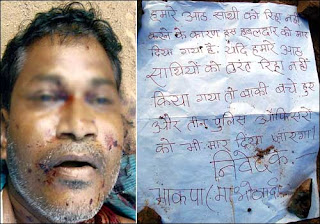 हमारे आठ साथी को रिहा नहीं
करने के कारण इस हवलदार को मार
दिया गया है। यदि हमारे आठ
साथियों को तुरंत रिहा नहीं
किया गया तो बाकी बचे हुए
और तीन पुलिस ऑफिसरों
को भी मार दिया जाएगा।
निवेदक
भाकपा (मा